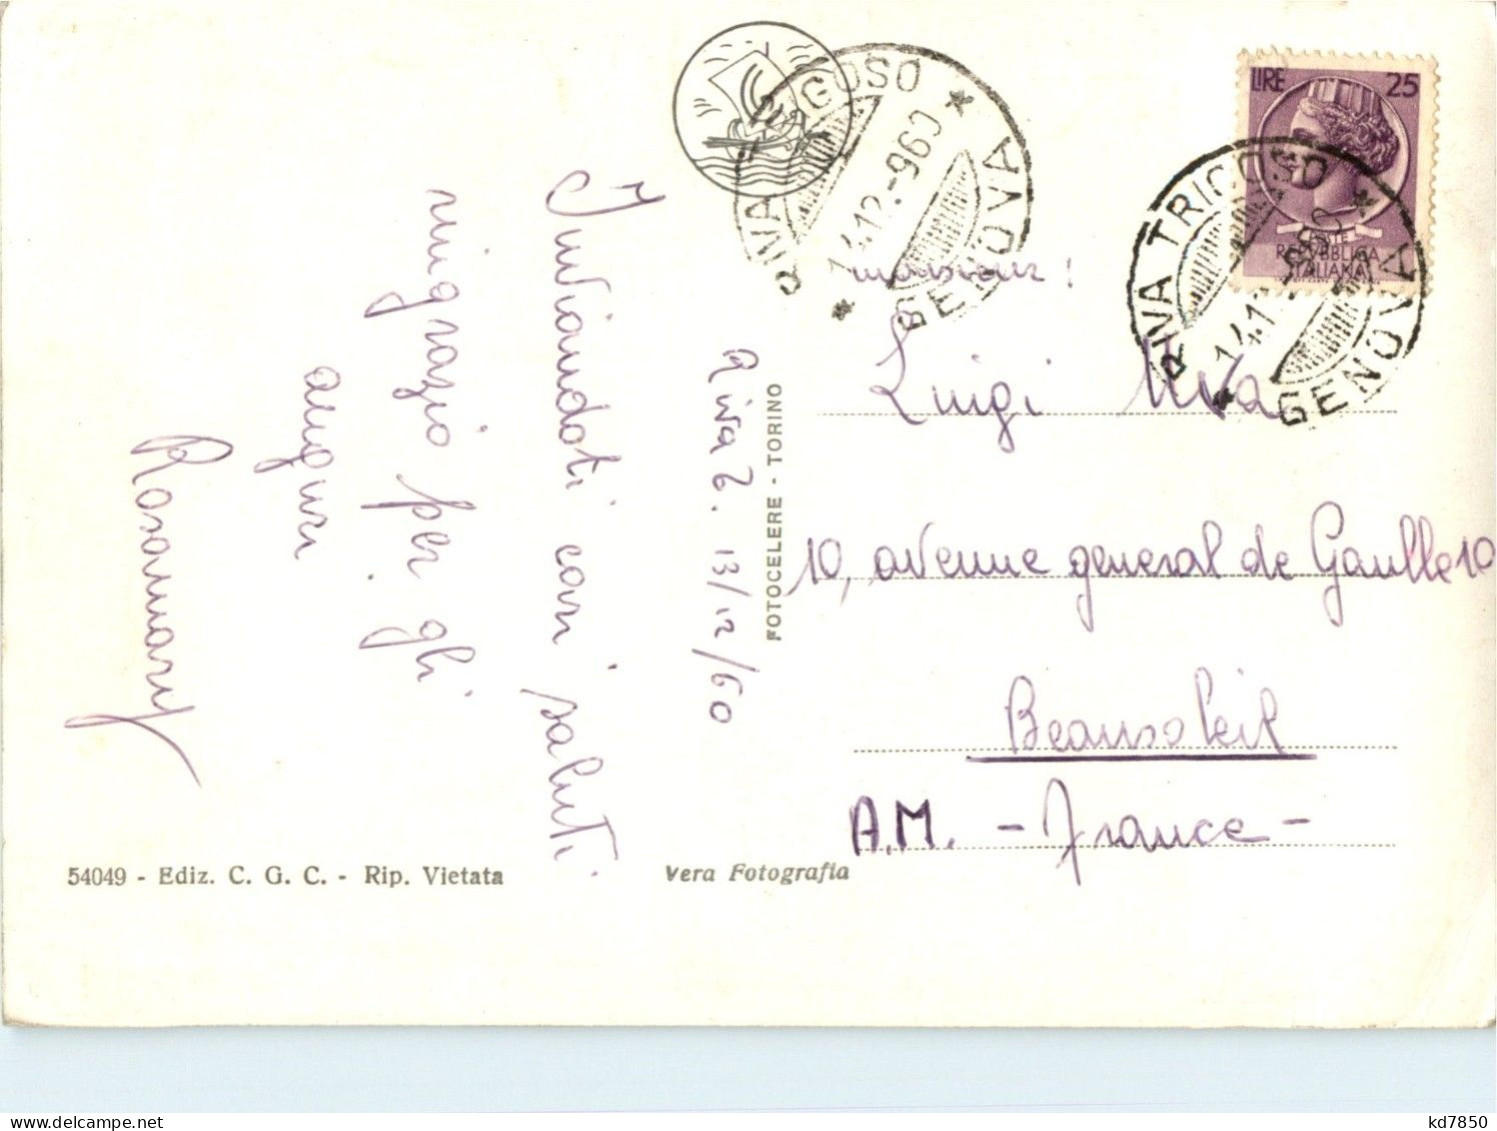 LIRE 25
POSTE
REPUBBLICA
ITALIANA
RIVA TRIGOSO * GENOVA *
14.12.960
RIVA TRIGOSO * GENOVA *
14.12.960
Riva T. 13/12/60
Inviandoti cari saluti
ringrazio per gli
auguri
Rosamary
monsieur!
Luigi
10, avenue general de Gaulle 10
Beausoleil
A.M. - France -
FOTOCELERE - TORINO
54049 - Ediz. C. G. C. - Rip. Vietata
Vera Fotografia
kd7850